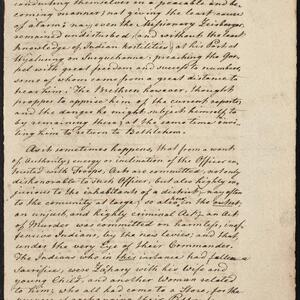 conducting themselves in a peaceable and be-
coming manner; not giving the least cause
of alarm; nay, even the Missionary Zeisberger,
remained undisturbed (and without the least
knowledge of Indian hostilities) at his Post at
Wyalusing on Susquehanna; preaching the Gos-
pel with great freedom and success to numbers
some of whom came from a great distance to
hear him. The Brethren however, thought
propper to apprise him of the current reports,
and the danger he might subject himself to
by remaining there; at the same time invi-
ting him to return to Bethlehem.
As it sometimes happens, that from a want
of Authority, energy or inclination of the Officer in-
trusted with Troops, Acts are committed, not only
dishonorable to such Officer, but also highly in-
jurious to the inhabitants of a district, nay often
to the community at large; so also, in the outset,
an unjust, and highly criminal Act; an Act
of Murder was committed on harmless, inof-
fensive Indians, by the new levies; and that
under the very Eye of their Commander.
The Indians who in this instance had fallen a
Sacrifice, were Zachary with his Wife and
young Child; and another Woman related
to him; who all had come to a Store, for the